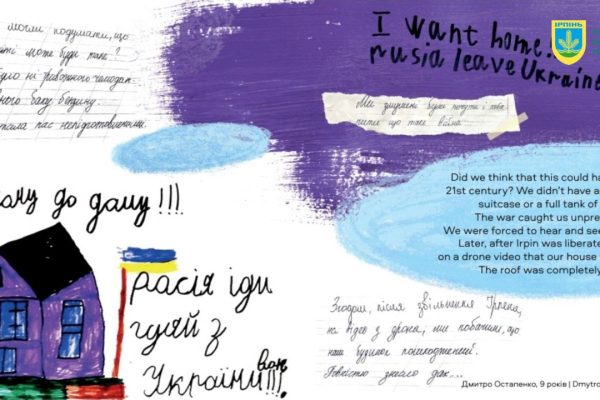 могли подумати, що
може бути таке?
ні тривожного чемодан-
баку бензину.
нас непідготовленими.
I want home.
rusia leave Ukraine
ІРПІНЬ
Ми змушені були почути і поба-
чити що таке війна
Did we think that this could ha
21st century? We didn't have a
suitcase or a full tank of
The war caught us unpre
We were forced to hear and see
Later, after Irpin was liberate
on a drone video that our house
The roof was completely
до дому!!!
расія іди
гуляй з
України вон!!!
Згодом, після звільнення Ірпеня,
на відео з дрона, ми побачили, що
наш будинок пошкоджений.
Повністю знесло дах....
Дмитро Остапенко, 9 років | Dmytro